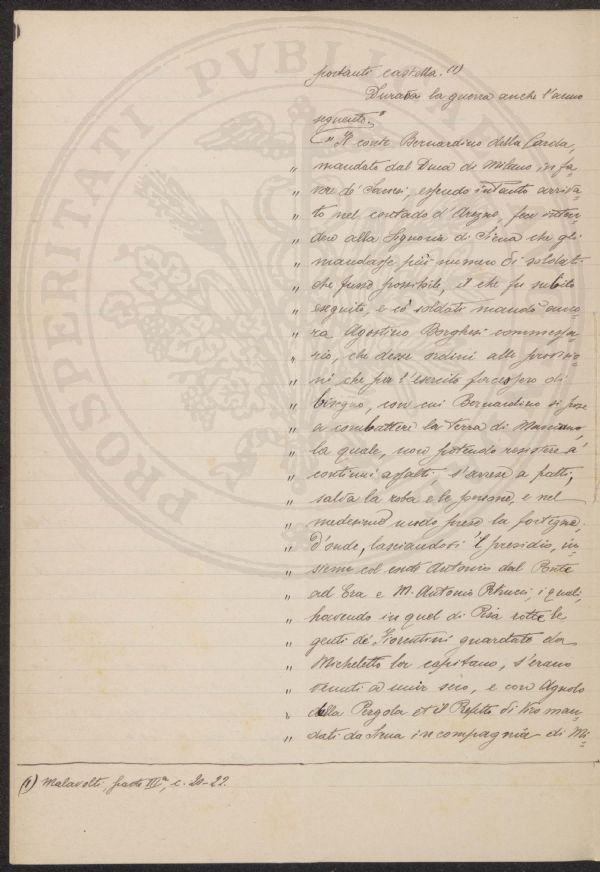 portanti castella. (1)
Durava la guerra anche l'anno
seguente.
"Il conte Bernardino della Carda,
" mandato dal Duca di Milano in fa-
" vore de' Sanesi, essendo intanto arriva-
" to nel contado d'Arezzo, fece inten-
" dere alla Signoria di Siena che gli
" mandasse più numero di soldati
" che fusse possibile, il che fu subito
" eseguito, e co' soldati mandò anco-
" ra Agostino Borghesi commessa-
" rio, che desse ordini alle provisio-
" ni che per l'esercito facessero di
" bisogno, con cui Bernardino si pose
" a combattere la Terra di Marciano,
" la quale, non potendo resistere a'
" continui assalti s'arrese a patti,
" salva la roba e le persone, e nel
" medesimo modo prese la fortezza,
" d'onde, lasciandovi il presidio, in-
" sieme col conte Antonio dal Ponte
" ad Era e M. Antonio Petrucci, i quali,
" havendo in quel di Pisa rotte le
" genti de' Fiorentini guardate da
" Micheletto lor capitano, s'erano
" venuti a unir seco, e con Agnolo
" della Pergola et il Prefetto di Vico man-
" dati da Siena in compagnia di Mi-
(1) Malavolti, parte III^a, c. 20-22.
PROSPERITATI PVBLICAE